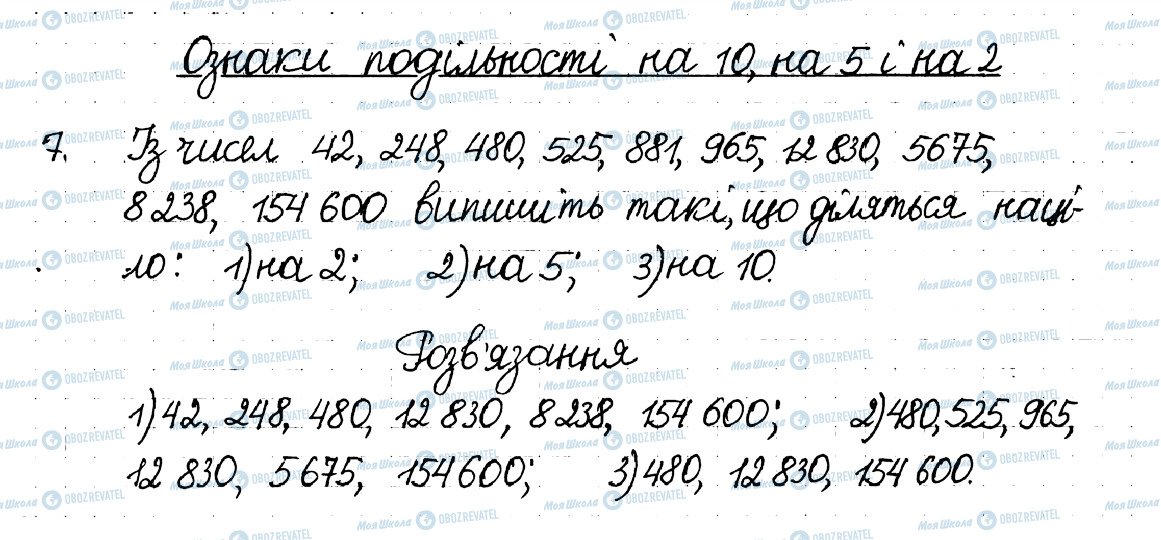 Ознаки подільності на 10, на 5 і на 2
7. Із чисел 42, 248, 480, 525, 881, 965, 12 830, 5675,
8 238, 154 600 випишіть такі, що діляться наці-
ло: 1) на 2; 2) на 5; 3) на 10.
Розв'язання
1) 42, 248, 480, 12 830, 8 238, 154 600; 2) 480, 525, 965,
12 830, 5 675, 154 600; 3) 480, 12 830, 154 600.